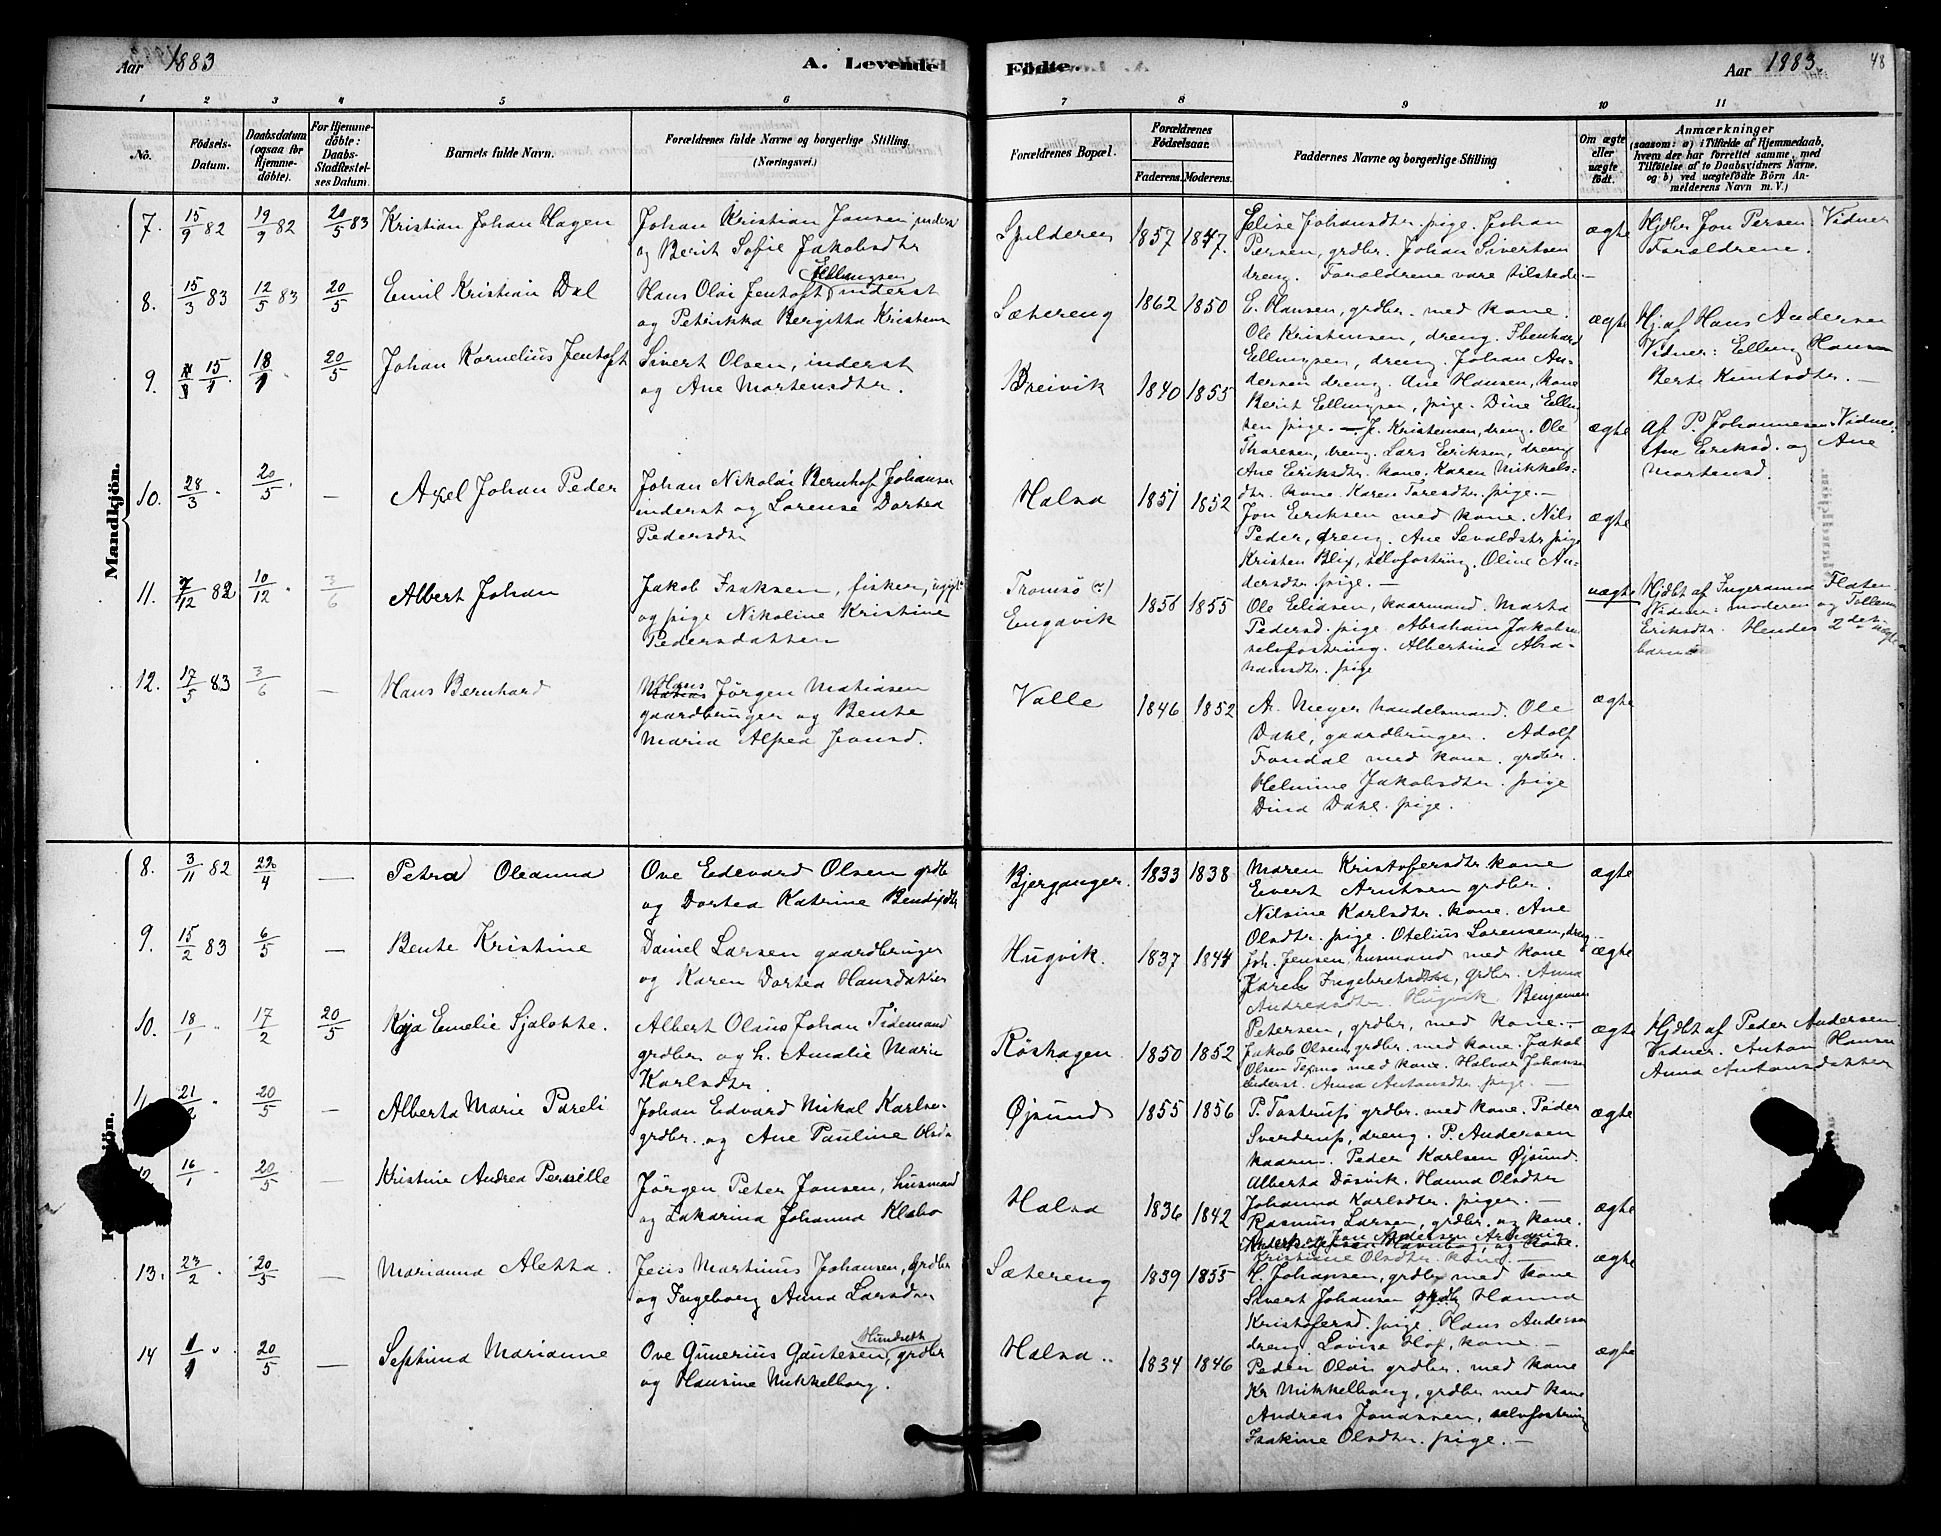 Aar 1883
A. Levende Födte.
Aar 1883.
48
1 2 3 4 5 6 7 8 9 10 11
No.
Födsels-Datum.
Daabsdatum (ogsaa for Hjemme-döbte).
For Hjemme-döbte: Daabs-Stadfæstel-ses Datum.
Barnets fulde Navn.
Forældrenes fulde Navne og borgerlige Stilling.
(Næringsvei.)
Forældrenes Bopæl.
Forældrenes Födselsaar.
Faderens. Moderens.
Faddernes Navne og borgerlige Stilling
Om ægte eller uægte födt.
Anmærkninger
(saasom: a) i Tilfælde af Hjemmedaab,
hvem der har forrettet samme, med
Tilföielse af to Daabsvidners Navne.
og b) ved uægtefödte Börn An-
melderens Navn m. V.)
Mandkjön.
7. 15/9 82 19/9 82 20/5 83 Kristian Johan Hagen
Johan Kristian Jonsen inderst
og Berit Sofie Jakobsdtr
Spilderen 1857 1847.
Elise Johansdtr. pige. Johan
Persen, grdbr. Johan Sivertsen
dreng. Forældrene vare tilstede.—
ægte
Hjdbt Jon Persen Vidner
Forældrene.
8. 15/3 83 12/5 83 20/5 Emil Kristian Dal
Hans Olai Jentoft Ellingsen inderst
og Petrikka Bergitta Kristens
Sætereng 1862 1850
E. Hansen, grdbr. med kone.
Ole Kristensen, dreng. Ibenhard
Ellingsen, dreng. Johan An-
dersen dreng. Ane Hansen, kone
Berit Ellingsen, pige. Dine Ellin
sen pige.
ægte
Hj. af Hans Andersen
Vidner: Elling Hansen
Berte Knutsdtr. —
9. 15/1 18/1 20/5 Johan Kornelius Jentoft
Sivert Olsen, inderst
og Ane Mortensdtr.
Breivik 1840 1855
J. Kristensen, dreng. Ole
Thoresen, dreng. Lars Eriksen, dreng
Ane Eriksdtr. kone. Karen Mikkels-
dtr. kone. Karen Toresdtr. pige. —
ægte
af P. Johannesen Vidner:
Ane Eriksd. og Ane
Mortensd.
10. 28/3 " 20/5 — Axel Johan Peder
Johan Nikolai Bernhof Johansen
inderst og Lorense Dortea
Pedersdtr
Halsa 1851 1852
Jon Eriksen med kone. Nils
Peder, dreng. Ane Sevaldstr pige
Kristen Blix, selvfostring. Oline An-
dersdtr. pige. —
ægte
11. 7/12 82 10/12 " 3/6 Albert Johan
Jakob Isaksen, fisker, ugift
og pige Nikoline Kristine
Pedersdatter
Tromsø (?)
Engavik 1856 1855
Ole Eliasen, kaarmand. Marta
Pedersd. pige. Abraham Jakobsen
selvfostring. Albertina Abra-
hamsdtr. pige
uægte
Hjdbt af Ingeranna Flaten
Vidner: moderen og Tollena
Eriksdtr. Hendes 2det uægte
barn
12. 17/5 83 3/6 — Hans Bernhard
Hans Jörgen Matiasen
gaardbruger og Bente
Maria Alfea Jonsd.
Valle 1846 1852
A. Meyer handelsmand. Ole
Dahl, gaardbruger. Adolf
Fondal med kone. grdbr.
Helmine Jakobsdtr. pige
Dina Dahl. pige.
ægte
8. 3/11 82 22/4 — Petra Oleanna
Ove Edevard Olsen grdb
og Dortea Katrine Bendixdtr
Bjergangen. 1833 1838
Maren Kristofersdtr. kone
Evert Arntsen grdbr.
Nilsine Karlsdtr. kone. Ane
Olsdtr. pige. Otelius Sorensen, dreng
ægte
9. 15/2 83 6/5 — Bente Kristine
Daniel Larsen gaardbruger
og Karen Dortea Hansdatter
Hugvik. 1837 1844
Joh. Jensen, husmand med kone
Karel Ingebretsd, grdbr. Anna
Andreasdtr. Hugvik. Benjamin
Petersen, grdbr, med kone. —
ægte
10. 18/1 " 17/2 20/5 Kaja Emelie Sjalotte.
Albert Olaus Johan Tidemand
grdbr og h. Amalie Marie
Karlsdtr.
Röshagen. 1850 1852
Jakob Olsen grdbr. med kone. Jakob
Olsen Texmo med kone. Halvor Johansen
inderst. Anna Antonsdtr. pige. —
ægte
Hjdbt af Peder Andersen
Vidner. Anton Hansen
Anna Antonsdatter
21/2 " 20/5 — Alberta Marie Pareli
Johan Edvard Mikal Karlse.
grdbr. og Ane Pauline Olsd
Øjsund 1855 1856
P. Tostrup grdbr. med kone. Peder
Sverdrup, dreng. P. Andersen
kaarm. Peder Karlsen Øjsund.
Alberta Dosvik. Hanna Olsdtr
Johanna Karlsdtr. piger. —
ægte
16/1 20/5 — Kristine Andrea Pernille
Jörgen Peter Jonsen, husmand
og Zakarina Johanna Klæbo
Halsa 1836 1842
Rasmus Larsen, grdbr. og kone.
Kristiane Olsdtr. kone. —
ægte
13. 27/2 . 20/5 — Marianna Aletta.
Jens Martinus Johansen, grdbr
og Ingeborg Anna Larsdtr
Sætereng 1839 1855
L. Johansen, grdbr med kone
Sivert Johansen grdbr Hanna
Kristofersd. pige. Hans Andersen
dreng. Lovise Hof, kone. —
ægte
14 1/1 " 20/5 — Septima Marianne
Ove Gunerius Gautesen, Hundseth grdbr
og Hansine Mikkelborg.
Halsa.. 1834 1846
Peder Olai grdbr. med kone
Kr Mikkelborg, grdbr med kone
Andreas Jonassen, selvfostring
Isakine Olsdtr. pige. —
ægte